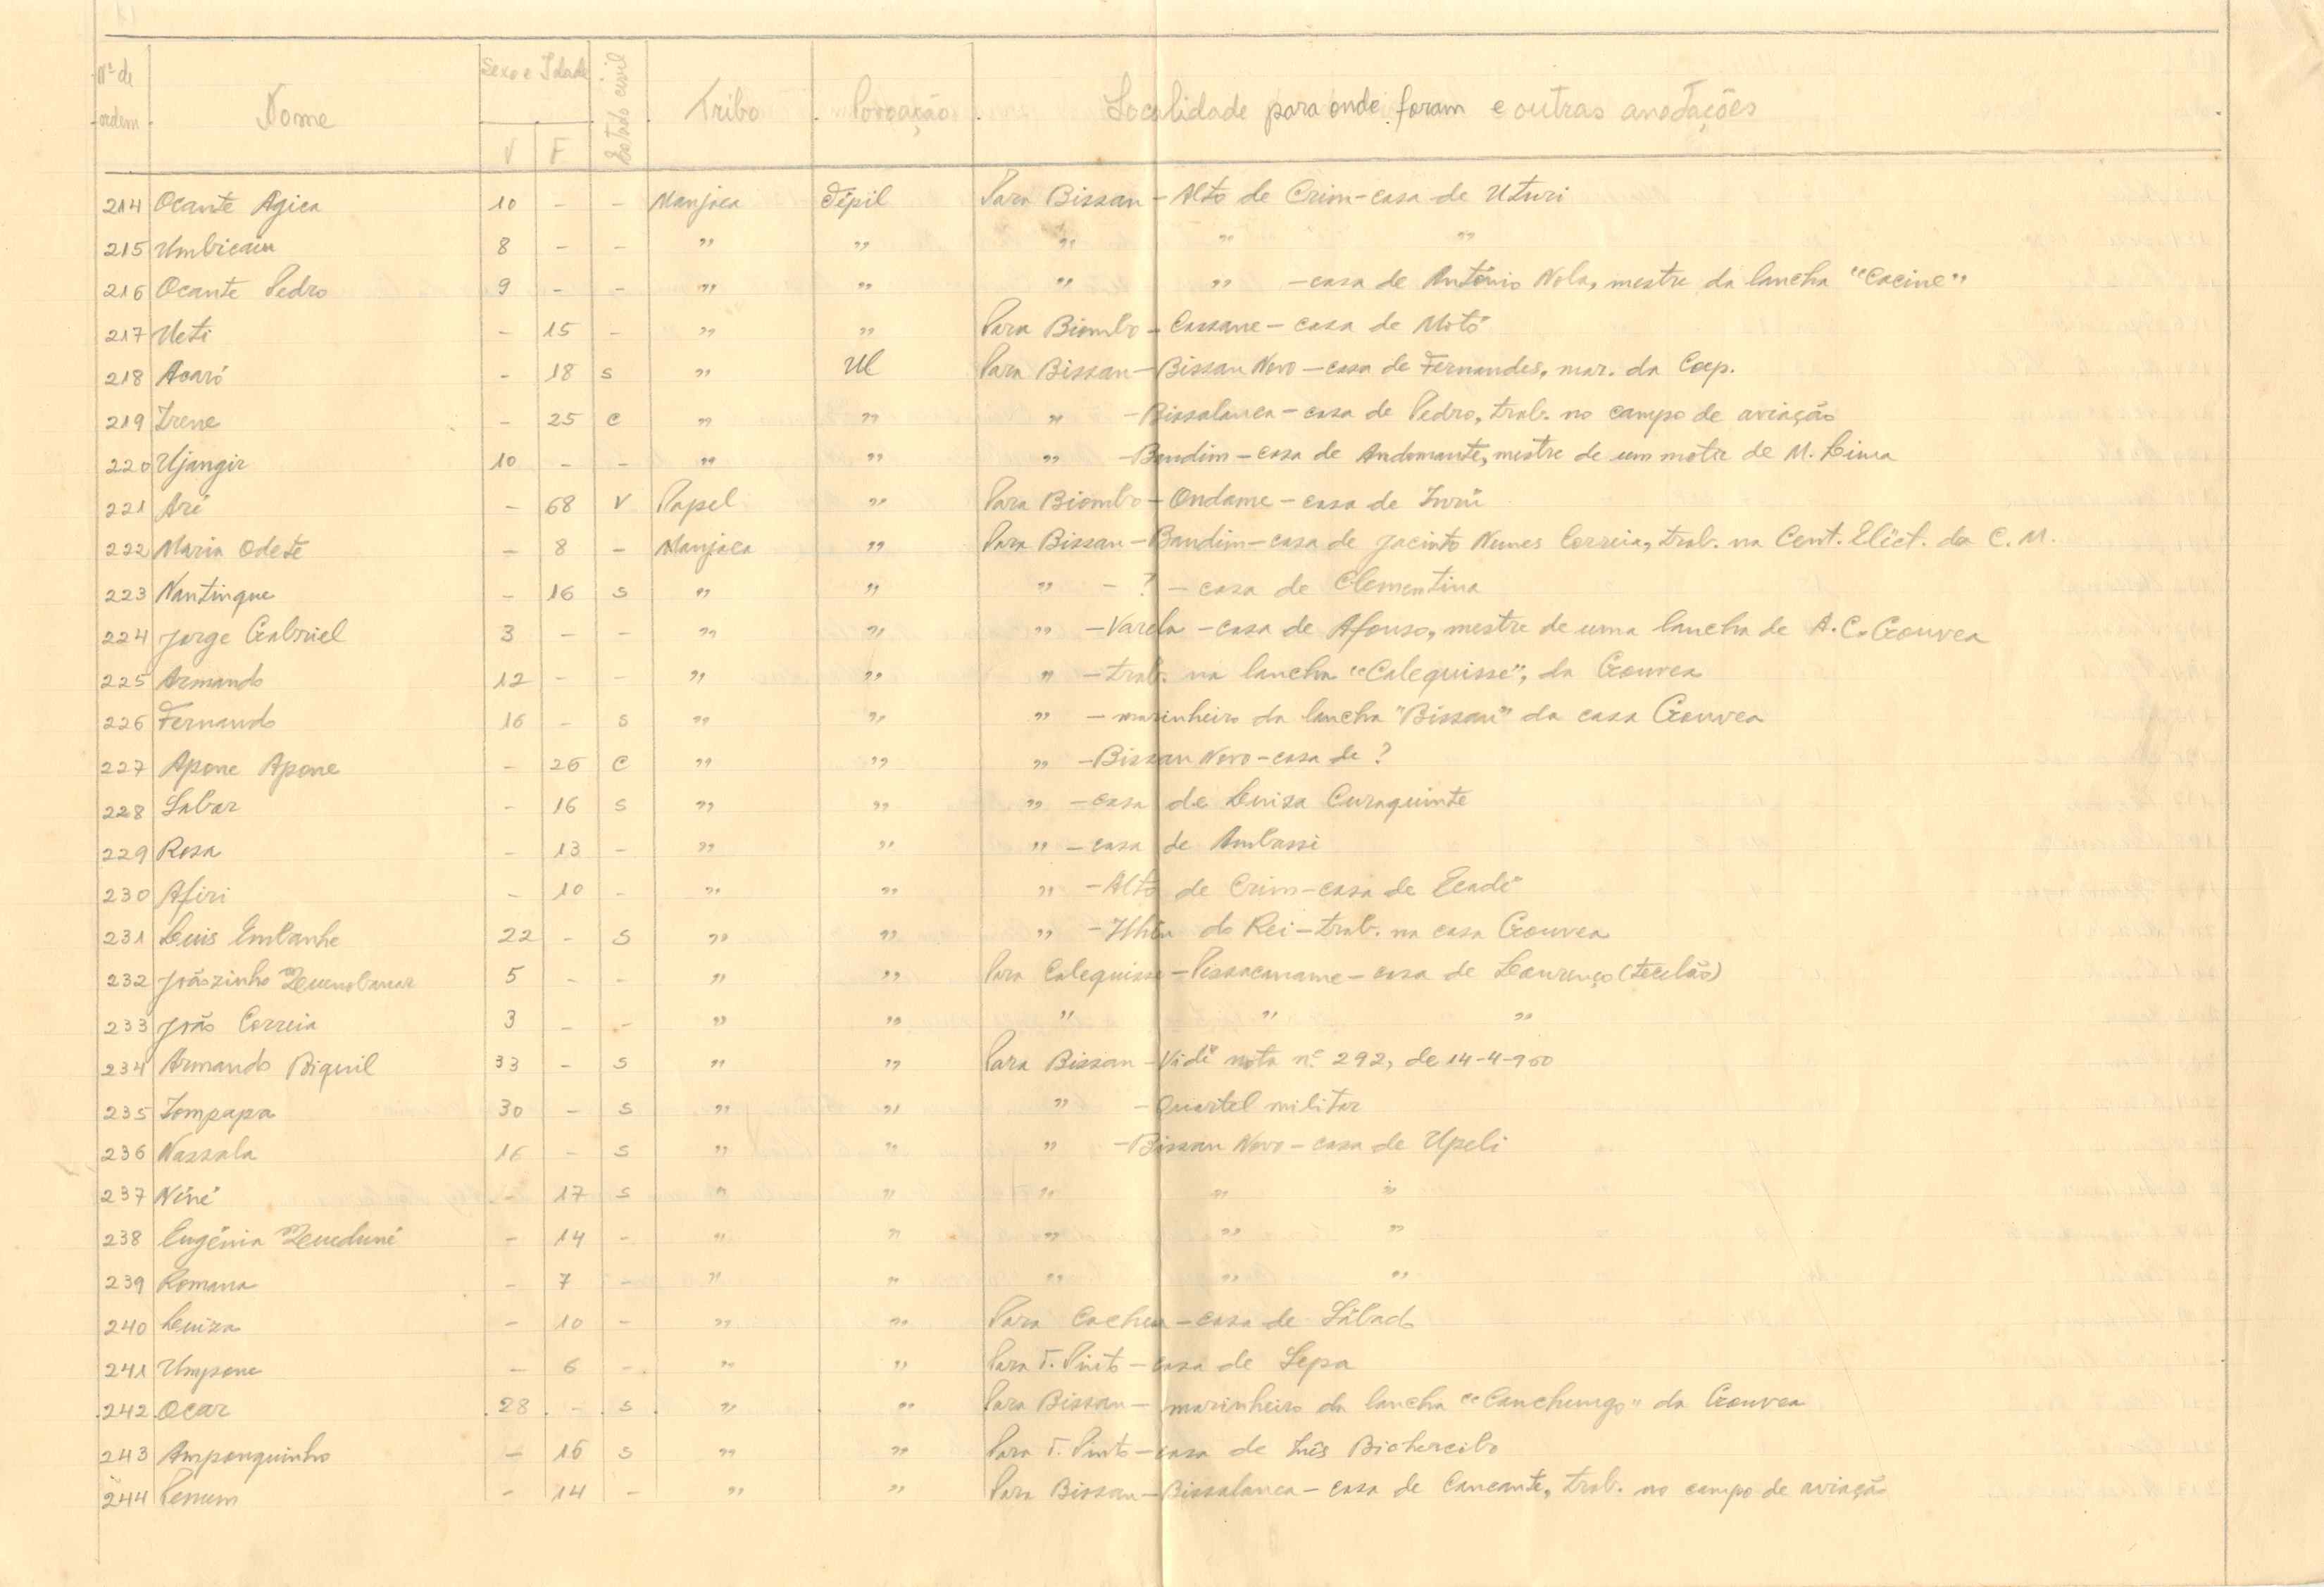 Nº de ordem Nome Sexo e Idade V F Estado civil Tribo Povoação Localidade para onde foram e outras anotações
214 Ocante Agica 10 - - Manjaca Tipil Para Bissau - Alto de Crim - casa de Uturi
215 Umbicain 8 - - " " " " "
216 Ocante Pedro 9 - - " " " " - casa de António Nola, mestre da lancha "Cacine"
217 Ueti - 15 - " " Para Biombo - Cassane - casa de Motó
218 Aoaró - 18 S " Ul Para Bissau - Bissau Novo - casa de Fernandes, mar. da Cap.
219 Irene - 25 C " " " - Bissalanca - casa de Pedro, trab. no campo de aviação
220 Ujangir 10 - - " " " - Bandim - casa de Andomante, mestre de um motor de M. Lima
221 Aré - 68 V Papel " Para Biombo - Ondame - casa de
222 Maria Odete - 8 - Manjaca " Para Bissau - Bandim - casa de Jacinto Nunes Correia, trab. na Cent. Eléct. da C. M.
223 Nantinque - 16 S " " " - ? - casa de Clementina
224 Jorge Gabriel 3 - - " " " - Varela - casa de Afonso, mestre de uma lancha de A. C. Gouvea
225 Armando 12 - - " " " - trab. na lancha "Calequisse", da Gouvea
226 Fernando 16 - S " " " - marinheiro da lancha "Bissau" da casa Gouvea
227 Apone Apone - 26 C " " " - Bissau Novo - casa de ?
228 Sabar - 16 S " " " - casa de Luiza Curaquinte
229 Rosa - 13 - " " " - casa de Ambassi
230 Afiri - 10 - " " " - Alto de Crim - casa de Ecadé
231 Luis Embanhe 22 - S " " " - Ilhéu do Rei - trab. na casa Gouvea
232 Joãozinho 5 - - " " Para Calequisse - Pissacaname - casa de Lourenço (tecelão)
233 João Correia 3 - - " " " " "
234 Armando Biquil 33 - S " " Para Bissau - Vidé nota nº 292, de 14-4-950
235 Tompapa 30 - S " " " - Quartel militar
236 Nassala 16 - S " " " - Bissau Novo - casa de Upeli
237 Niné - 17 S " " " " "
238 Eugénia - 14 - " " " " "
239 Romana - 7 - " " " " "
240 Luiza - 10 - " " Para Cacheu - casa de Sábado
241 Umpone - 6 - " " Para T. Pinto - casa de Sepa
242 Ocar 28 - S " " Para Bissau - marinheiro da lancha "Canchungo" da Gouvea
243 Ampanquinho - 16 S " " Para T. Pinto - casa de Inês
244 Penum - 14 - " " Para Bissau - Bissalanca - casa de Cancante, trab. no campo de aviação